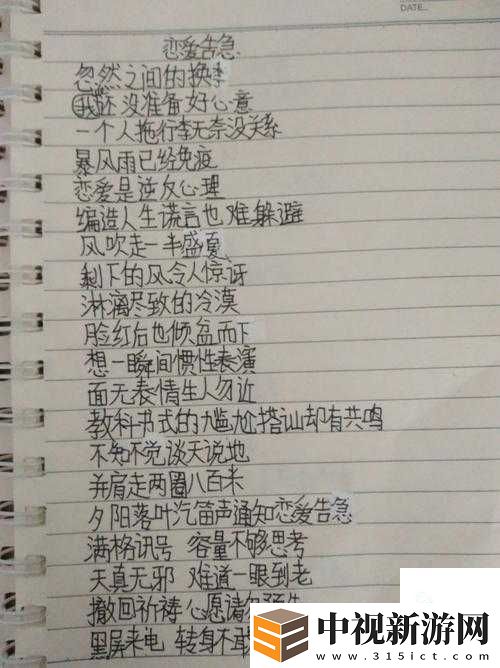 DATE.
恋爱告急
忽然之间的换季
我还没准备好心意
一个人拖行李无奈没关系
暴风雨已经免疫
恋爱是逆反心理
编造人生谎言也 难躲避
风吹走一半盛夏
剩下的风令人惊讶
淋漓尽致的冷漠
脸红后也倾盆而下
想一瞬间惯性表演
面无表情生人勿近
教科书式的尴尬搭讪却有共鸣
不知不觉谈天说地
并肩走两圈八百米
夕阳落叶汽笛声通知恋爱告急
满格讯号 容量不够思考
天真无邪 难道一眼到老
撤回祈祷心愿请勿
黑屏来电 转身不敢
中视新游网
www.315ict.com